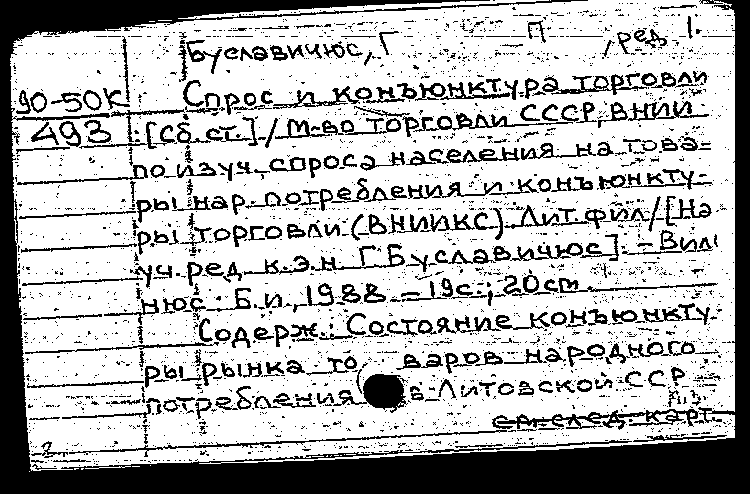 Буславичюс, Г П , ред 1.
90-50К Спрос и конъюнктура торговли
493 : [Сб. ст.] / М-во торговли СССР, ВНИИ
по изуч. спроса населения на това=
ры нар. потребления и конъюнкту-
ры торговли (ВНИИКС). Лит. фил / [На
уч. ред. к.э.н. Г. Буславичюс]. – Виль
нюс: Б.и., 1988. – 19с.; 20см.
Содерж.: Состояние конъюнкту-
ры рынка то варов народного
потребления в Литовской ССР
см. след. карт.